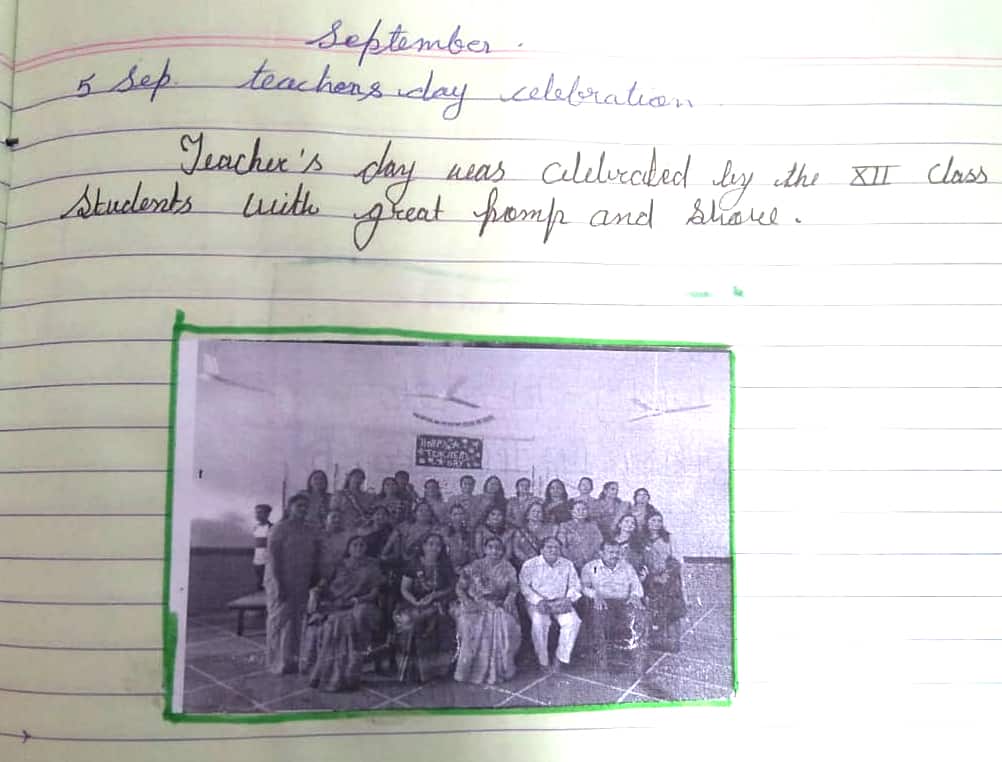 September.
5 Sep. teachers day celebration
Teacher's day was celebrated by the XII class
students with great pomp and
HAPPY
TEACHERS
DAY